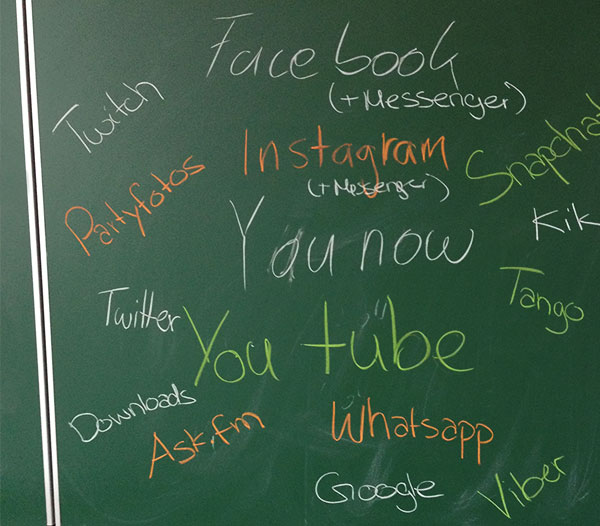 Facebook
(+Messenger)
Twitch
Instagram
(+Messenger)
Snapchat
Partyfotos
Kik
Younow
Tango
Twitter
You tube
Downloads
Ask.fm
Whatsapp
Google
Viber